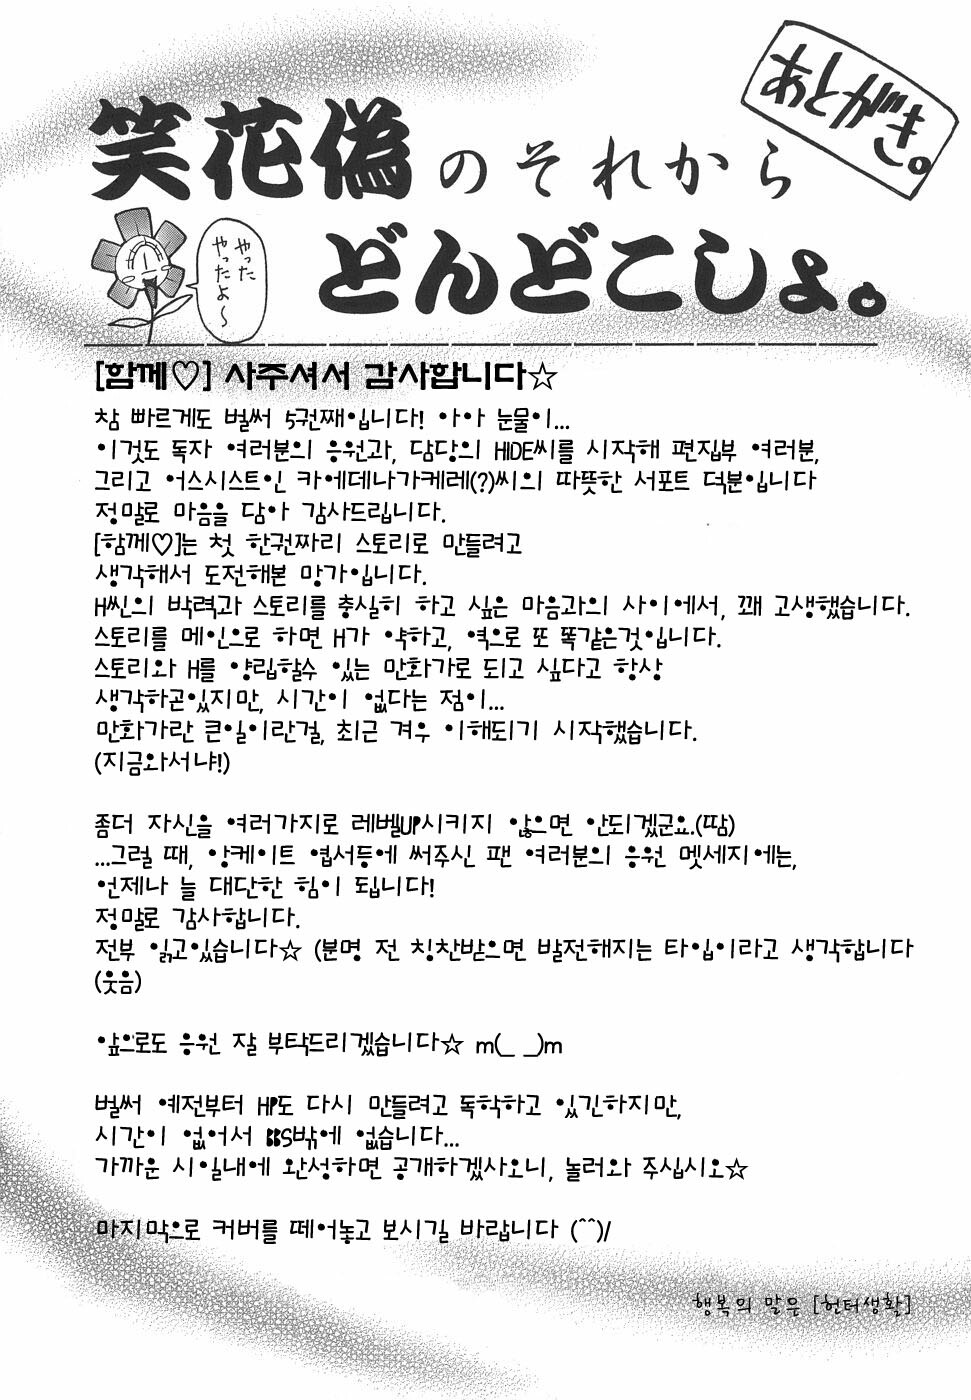 あとがき。
笑花偽のそれから
どんどこしょ。
やった
やったよ～
[함께♡] 사주셔서 감사합니다☆
참 빠르게도 벌써 5권째입니다! 아아 눈물이...
이것도 독자 여러분의 응원과, 담당의 HIDE씨를 시작해 편집부 여러분,
그리고 어스시스트인 카에데나가케레(?)씨의 따뜻한 서포트 덕분입니다
정말로 마음을 담아 감사드립니다.
[함께♡]는 첫 한권짜리 스토리로 만들려고
생각해서 도전해본 망가입니다.
H씬의 박력과 스토리를 충실히 하고 싶은 마음과의 사이에서, 꽤 고생했습니다.
스토리를 메인으로 하면 H가 약하고, 역으로 또 똑같은것입니다.
스토리와 H를 양립할수 있는 만화가로 되고 싶다고 항상
생각하곤있지만, 시간이 없다는 점이...
만화가란 큰일이란걸, 최근 겨우 이해되기 시작했습니다.
(지금와서냐!)
좀더 자신을 여러가지로 레벨UP시키지 않으면 안되겠군요.(땀)
...그럴 때, 앙케이트 엽서등에 써주신 팬 여러분의 응원 멧세지에는,
언제나 늘 대단한 힘이 됩니다!
정말로 감사합니다.
전부 읽고있습니다☆ (분명 전 칭찬받으면 발전해지는 타입이라고 생각합니다
(웃음)
앞으로도 응원 잘 부탁드리겠습니다☆ m(_ _)m
벌써 예전부터 HP도 다시 만들려고 독학하고 있긴하지만,
시간이 없어서 BBS밖에 없습니다...
가까운 시일내에 완성하면 공개하겠사오니, 놀러와 주십시오☆
마지막으로 커버를 떼어놓고 보시길 바랍니다 (^^)/
행복의 말은 [헌터생활]